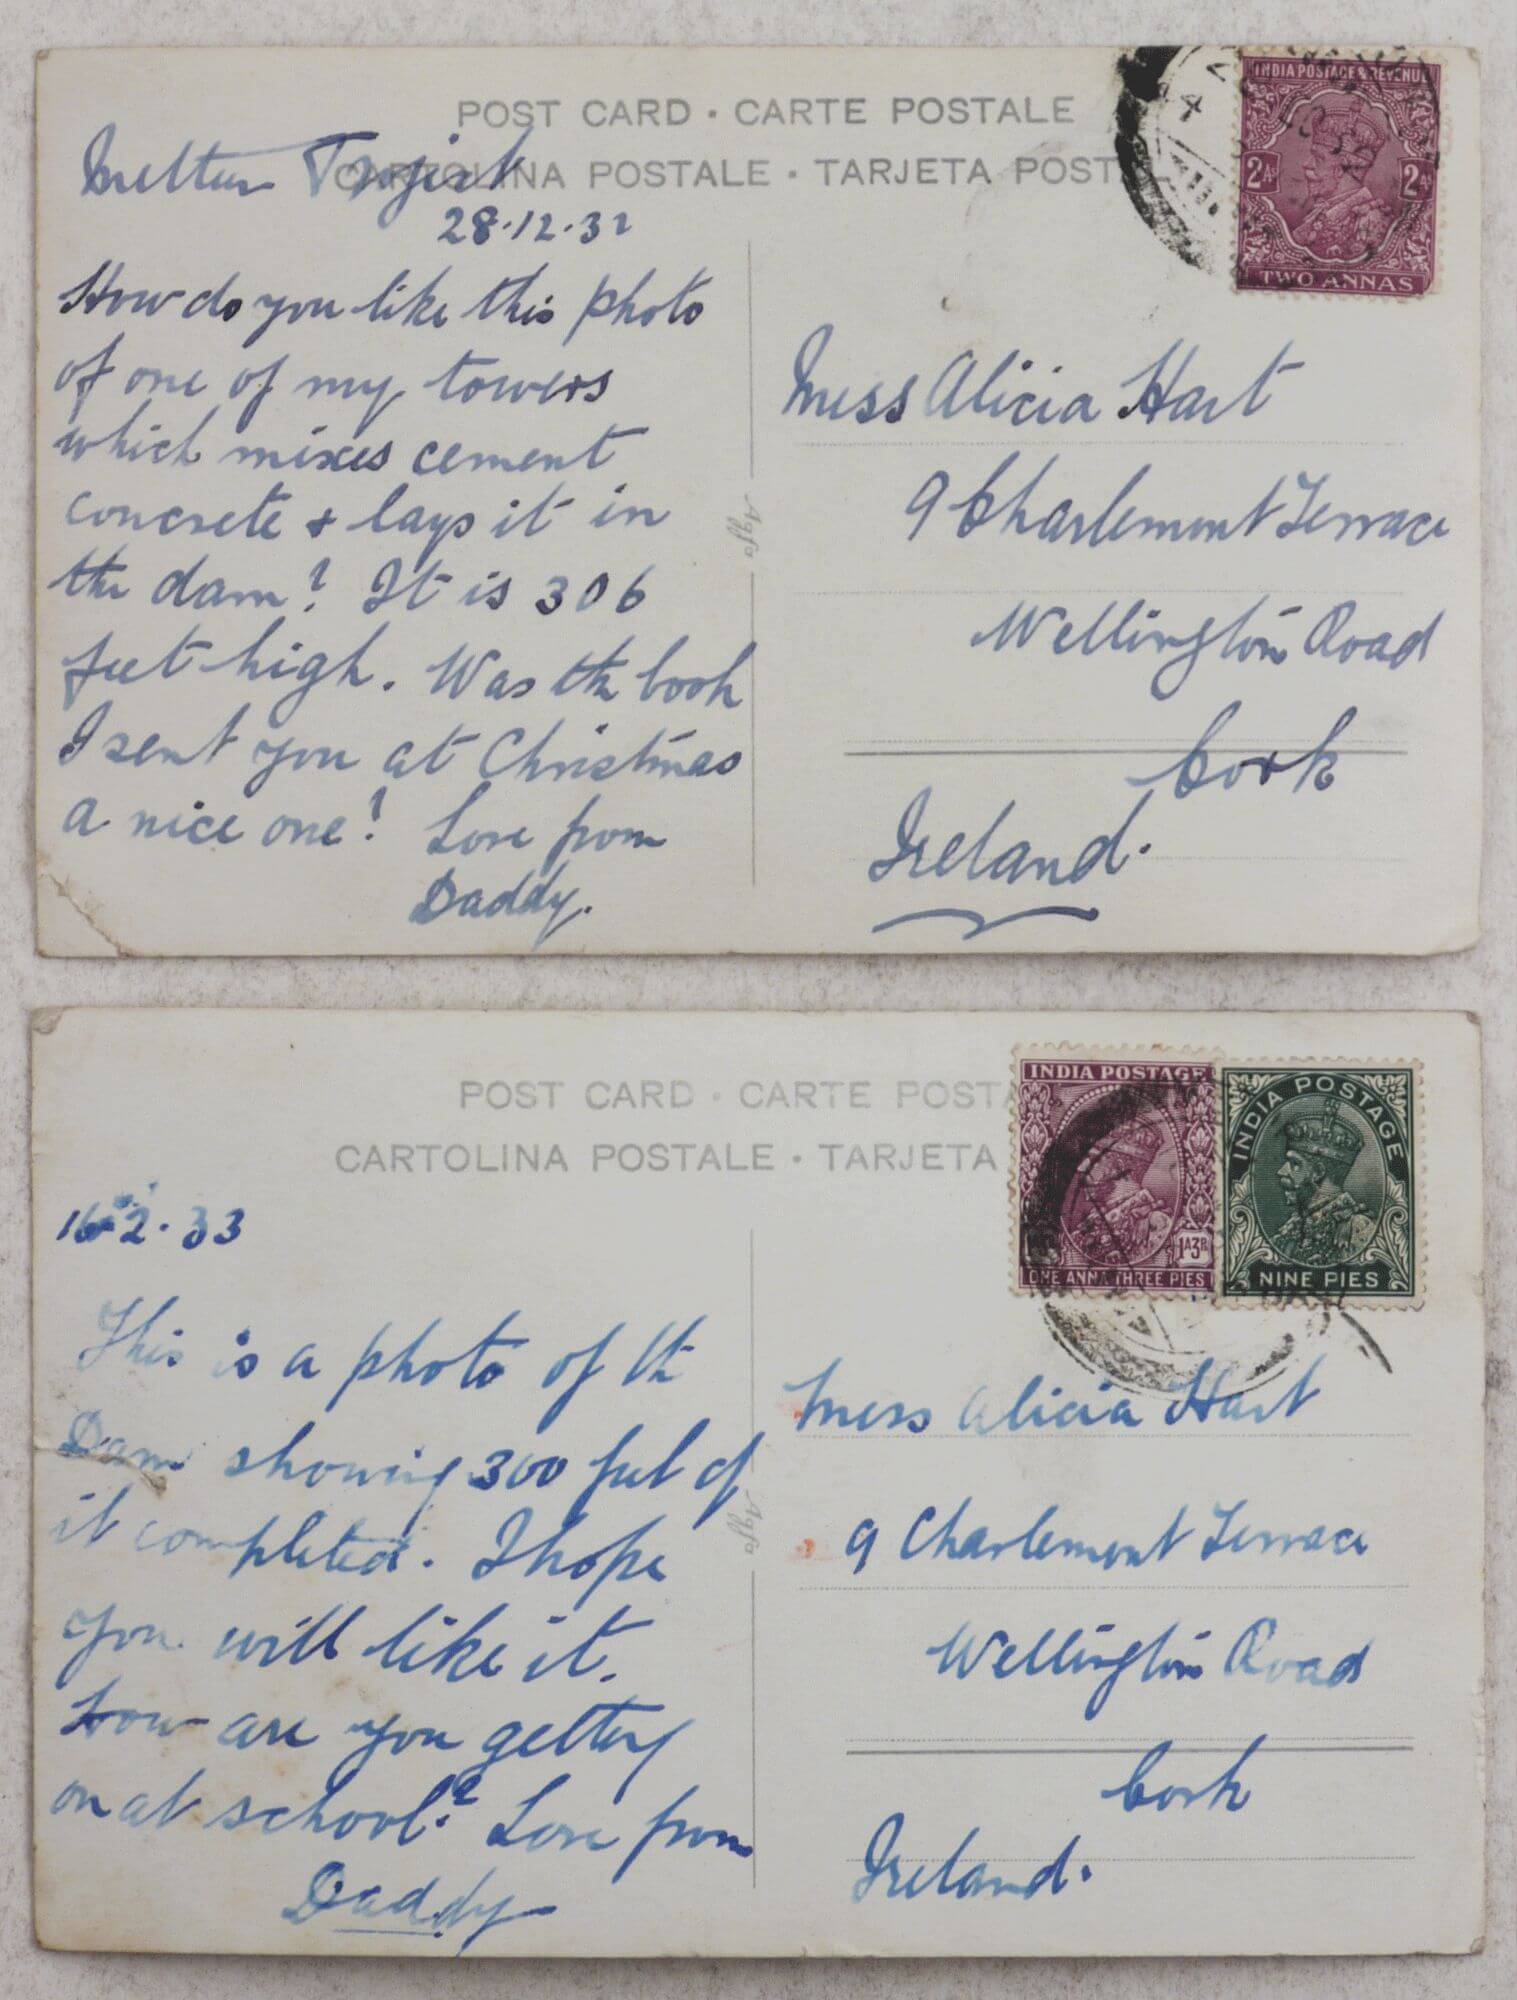 POST CARD · CARTE POSTALE
CARTOLINA POSTALE · TARJETA POSTAL
INDIA POSTAGE & REVENUE
2As 2As
TWO ANNAS
Mettur Project
28.12.32
How do you like this photo
of one of my towers
which mixes cement
concrete & lays it in
the dam? It is 306
feet high. Was the book
I sent you at Christmas
a nice one? Love from
Daddy.
Agfa
Miss Alicia Hart
9 Charlemont Terrace
Wellington Road
Cork
Ireland.
POST CARD · CARTE POSTA
CARTOLINA POSTALE · TARJETA
INDIA POSTAGE
1A3P
ONE ANNA THREE PIES
INDIA POSTAGE
NINE PIES
16.2.33
This is a photo of the
Dam showing 300 feet of
it completed. I hope
you will like it.
How are you getting
on at school? Love from
Daddy
Agfa
Miss Alicia Hart
9 Charlemont Terrace
Wellington Road
Cork
Ireland.